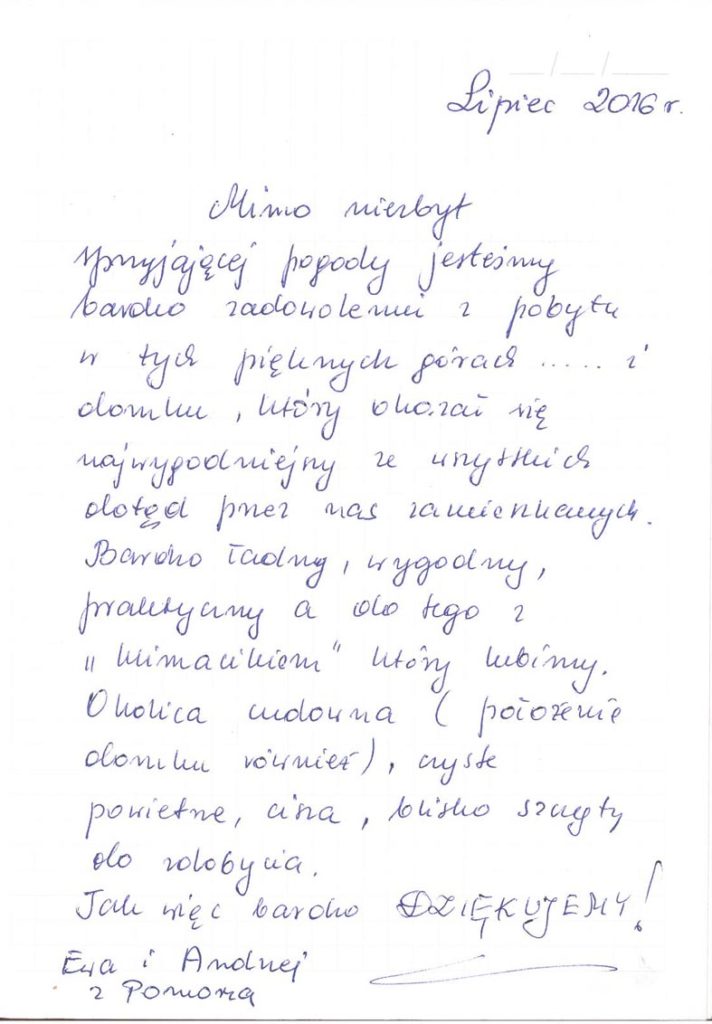 Lipiec 2016 r.
Mimo niezbyt
sprzyjającej pogody jesteśmy
bardzo zadowoleni z pobytu
w tych pięknych górach ..... i
domku, który okazał się
najwygodniejszy ze wszystkich
dotąd przez nas zamieszkanych.
Bardzo ładny, wygodny,
praktyczny a do tego z
„klimacikiem" który lubimy.
Okolica cudowna (położenie
domku również), czyste
powietrze, cisza, blisko szczyty
do zdobycia.
Tak więc bardzo DZIĘKUJEMY!
Ewa i Andrzej
z Pomorza